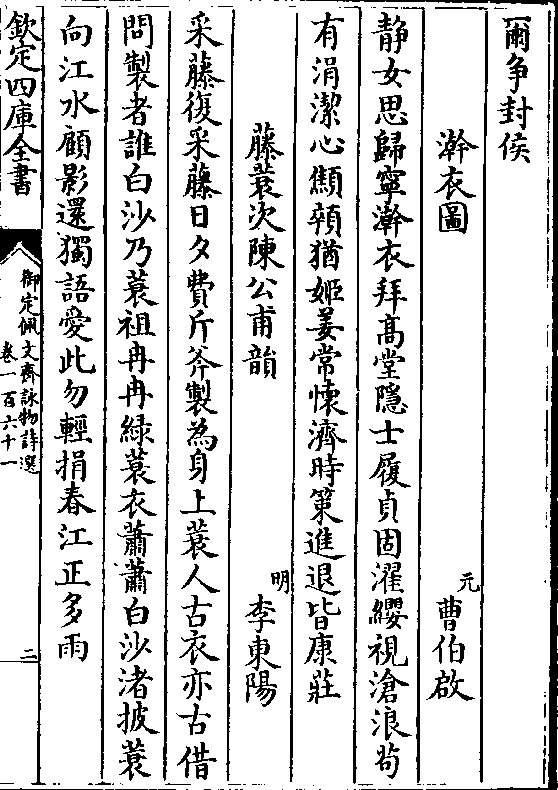 爾争封侯
澣衣圖
元曹伯啟
静女思歸寧澣衣拜高堂隱士履貞固濯纓視滄浪茍
有涓潔心顦顇猶姬姜常懷濟時策進退皆康莊
藤蓑次陳公甫韻
明李東陽
采藤復采藤日夕費斤斧製為身上蓑人古衣亦古借
問製者誰白沙乃蓑祖冉冉緑蓑衣蕭蕭白沙渚披蓑
向江水顧影還獨語愛此勿輕捐春江正多雨
欽定四庫全書
御定佩文齋詠物詩選
卷一百六十一
二